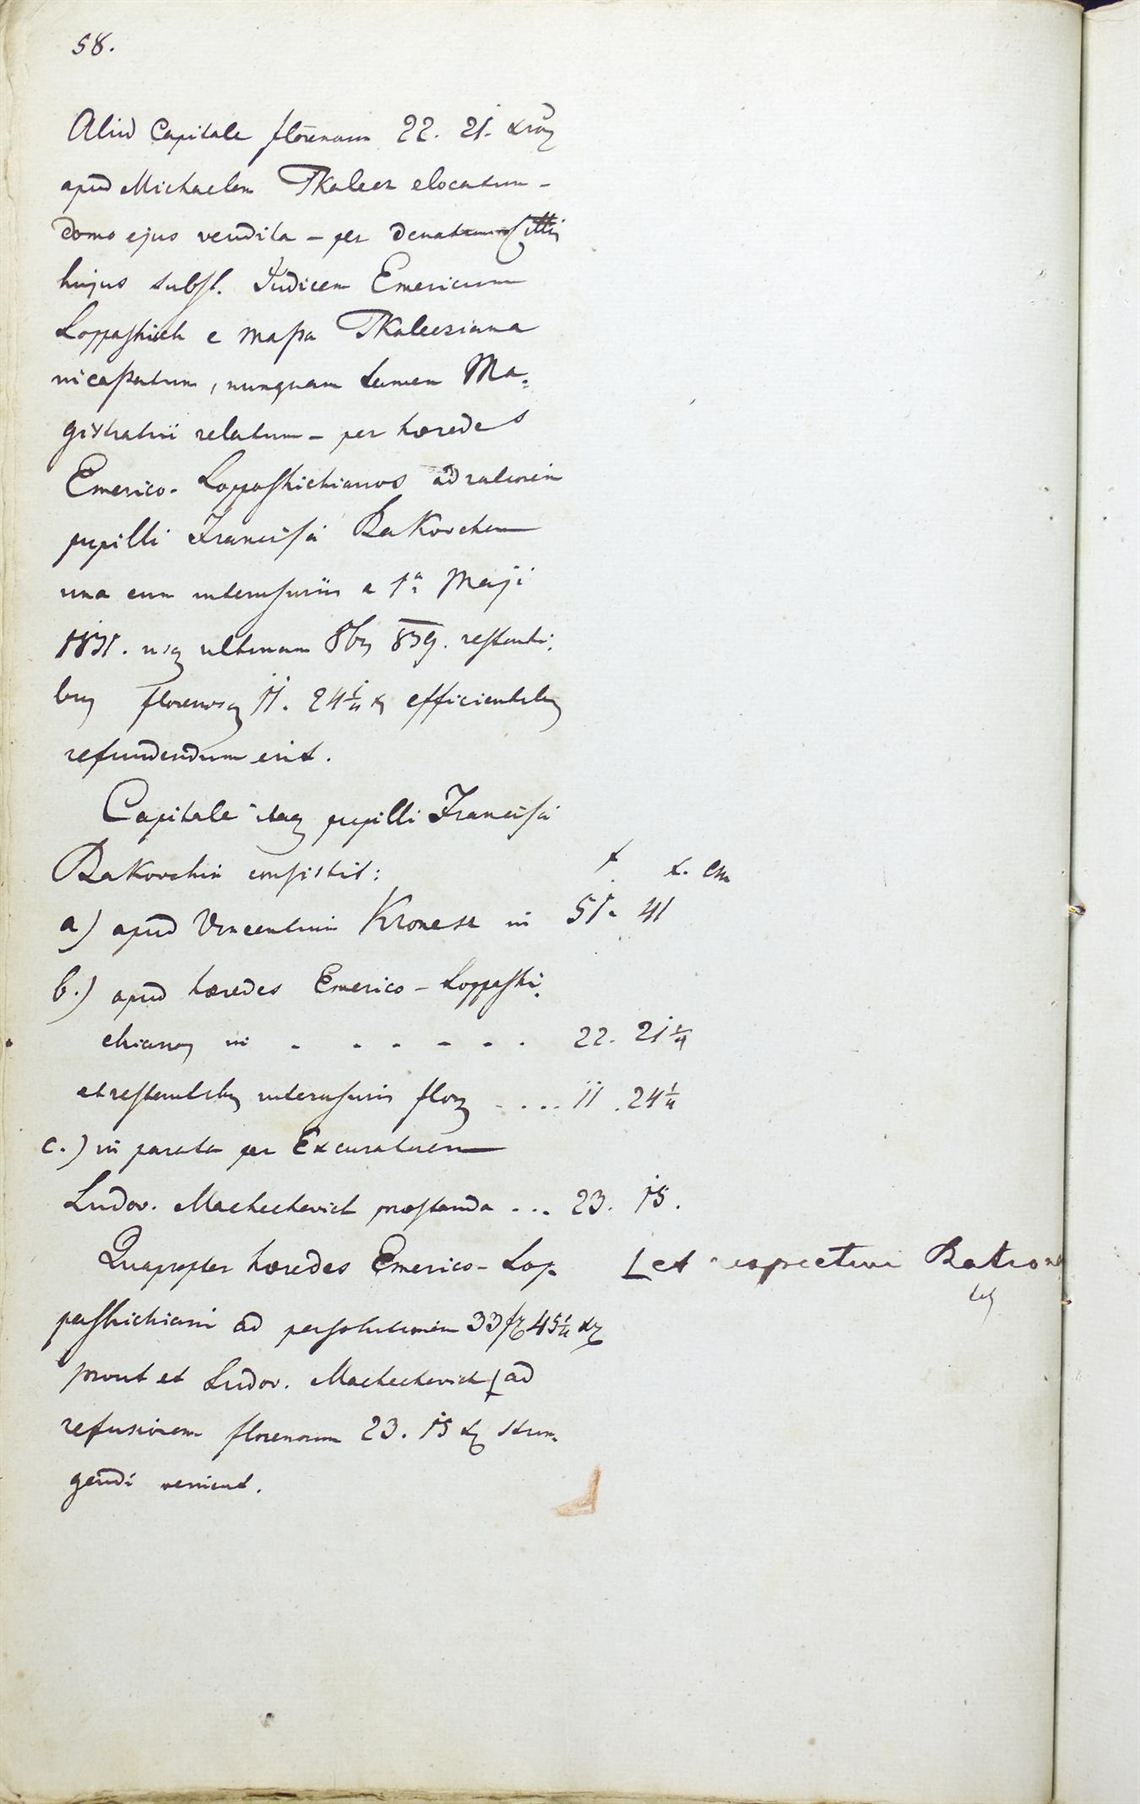 58.
Aliud Capitale florenorum 22. 21. xrorum
apud Michaelem Tkalecz elocatum –
domo ejus vendita – per denatum
hujus subst. Judicem Emericum
Loppashich e massa Tkalecziana
incassatum, nunquam tamen Ma-
gistratui relatum – per hæredes
Emerico-Loppashichianos ad rationem
pupilli Francisci Bakovchin
una cum interusuriis a 1a Maji
1831. usq ultimam 8bris 839. restanti-
bus florenos 11. 24 1/4 x efficientibus
refundendum erit.
Capitale itaq pupilli Francisci
Bakovchin consistit:
f x. Cm
a) apud Vincentium Kronesz in 51. 41
b.) apud hæredes Emerico-Loppashi-
chianos in - - - - - - 22. 21 2/4
et restantibus interusuriis flor - ... 11. 24 1/4
c.) in parata per Excuratorem
Ludov. Machechevich præstanda ... 23. 15.
Quapropter hæredes Emerico-Lop-
pashichiani ad persolutionem 33 f 45 1/4 xr
prout et Ludov. Machechevich [ad
[et respective
refusionem florenorum 23. 15 xr strin-
gendi venient.